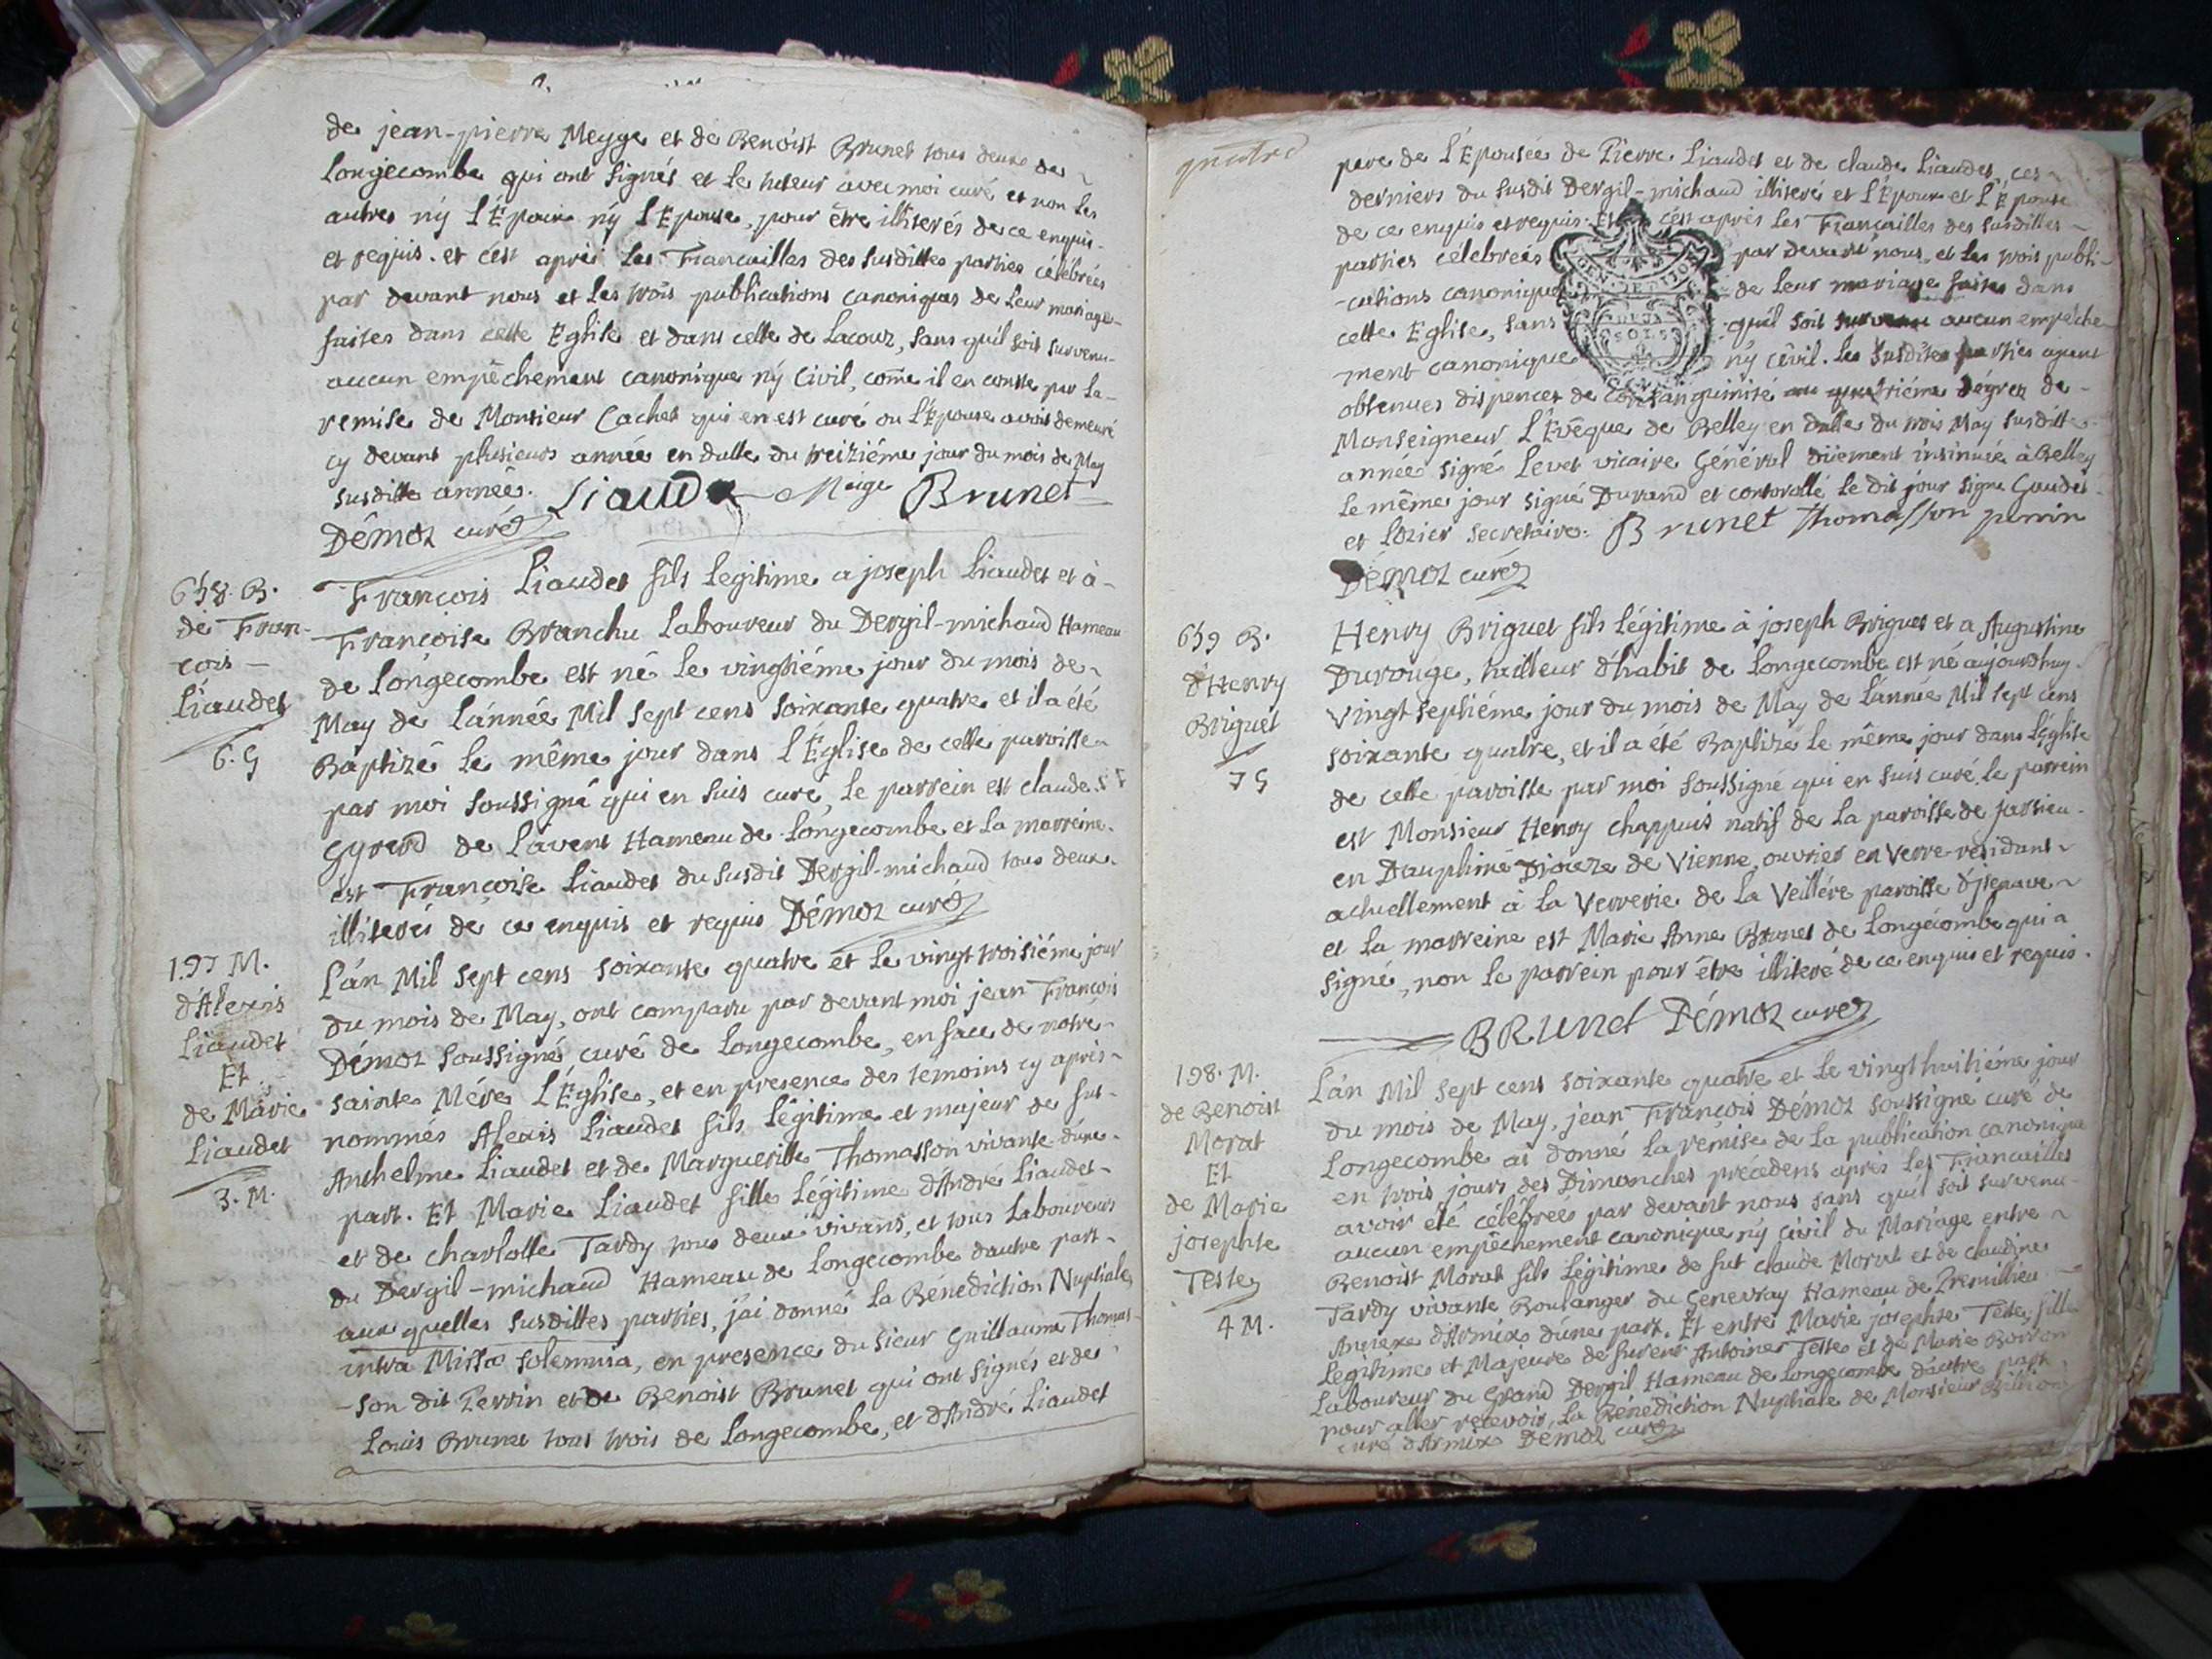 de jean-pierre Meyge et de Benoist Brunet tous deux de
Longecombe qui ont signés et le tuteur avec moi curé et non les
autres ny l'Epoux ny l'Epouse, pour être illiterés de ce enquis
et requis. et c'est aprés les Fiancailles des susdittes parties célébrées
par devant nous et les trois publications canoniques de leur mariage
faites dans cette Eglise et dans celle de Lacoux, sans qu'il soit survenu
aucun empêchement canonique ny Civil, come il en conste par la
remise de Monsieur Cachet qui en est curé ou l'Epouse avoit demeuré
cy devant plusieurs année en datte du treiziéme jour du mois de May
susditte année. Liaudet Meige Brunet
Démoz curé
658. B.
de Fran-
cois
Liaudet
6. G
François Liaudet fils legitime a joseph Liaudet et à
Françoise Branchu Laboureur du Dergil-michaud Hameau
de Longecombe est né le vingtiéme jour du mois de
May de L'année Mil sept cens soixante quatre et il a été
Baptizé le même jour dans l'Église de cette paroisse
par moi soussigné qui en suis curé, le parrein est claude
Gyrerd de Lavent Hameau de Longecombe et la marreine
est Françoise Liaudet du susdit Dergil-michaud tous deux
illiterés de ce enquis et requis Démoz curé
197 M.
d'Alexis
Liaudet
Et
de Marie
Liaudet
3. M.
L'an Mil sept cens soixante quatre et le vingt troisiéme jour
du mois de May, ont comparu par devant moi jean François
Démoz soussigné curé de Longecombe, en face de notre
sainte Mére l'Église, et en presence des témoins cy aprés
nommés Alexis Liaudet fils légitime et majeur de fut
Anthelme Liaudet et de Margueritte Thomasson vivante d'une
part. Et Marie Liaudet fille légitime d'André Liaudet
et de charlotte Tardy tous deux vivans, et tous Laboureurs
du Dergil-michaud Hameau de Longecombe d'autre part
aux quelles susdittes parties, j'ai donné la Bénédiction Nuptiale
intra Missæ solemnia, en presence du sieur Guillaume Thomas-
-son dit Perrin et de Benoist Brunet qui ont signés et de
Louis Brunet tous trois de Longecombe, et d'André Liaudet
quatre
pere de l'Épousée de Pierre Liaudet et de claude Liaudet, ces
derniers du susdit Dergil-michaud illiteré et l'Époux et l'Épouse
de ce enquis et requis. Et c'est aprés les Fiançailles des susdittes
parties célébrées par devant nous, et les trois publi-
-cations canoniques de leur mariage faites dans
cette Eglise, sans qu'il soit survenu aucun empéche
ment canonique ny civil. les susdites parties ayant
obtenues dispences de consanguinité au quatriéme dégrez de
Monseigneur L'Evêque de Belley en datte du trois May susditte
année signé Levet vicaire Général düement insinuée à Belley
le même jour signé Durand et controrollé le dit jour signé Gaudet
et Lozier secretaire. Brunet thomasson perrin
Démoz curé
GEN. DE DIJON
DEUX
SOLS
659 B.
d'Henry
Briguet
7 G
Henry Briguet fils légitime à joseph Briguet et a Augustine
Durouge, tailleur d'habit de Longecombe est né aujourdhuy
vingt septiéme jour du mois de May de L'année Mil sept cens
soixante quatre, et il a été Baptizé le même jour dans L'Église
de cette paroisse par moi soussigné qui en suis curé. le parrein
est Monsieur Henry chappuis natif de la paroisse de jarrieu
en Dauphiné Dioceze de Vienne, ouvrier en Verre résidant
actuellement à la Verrerie de la Veillére paroisse d'jzenave
et la marreine est Marie Anne Brunet de Longecombe qui a
signé, non le parrein pour être illiteré de ce enquis et requis.
BRunet Démoz curé
198. M.
de Benoist
Morat
Et
de Marie
josephte
Teste
4 M.
L'an Mil sept cens soixante quatre et le vingt huitiéme jour
du mois de May, jean François Démoz soussigné curé de
Longecombe ai donné la remise de la publication canonique
en trois jours des Dimanches précedens aprés les Fiancailles
avoir été célébrées par devant nous sans qu'il soit survenu
aucun empêchement canonique ny civil du Mariage entre
Benoist Morat fils légitime de fut claude Morat et de claudine
Tardy vivante Boulanger du Genevray Hameau de Premillieu
Annexe d'Armix d'une part. Et entre Marie josephte Teste fille
legitime et Majeure de furent Antoine Teste et de Marie Borron
Laboureur du Grand Dergil Hameau de Longecombe d'autre part
pour aller recevoir la Benediction Nuptiale de Monsieur
curé d'Armix Démoz curé